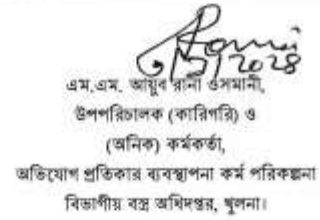 এম.এম. আয়ুব রানা ওসমানী,
উপপরিচালক (কারিগরি) ও
(অনিক) কর্মকর্তা,
অভিযোগ প্রতিকার ব্যবস্থাপনা কর্ম পরিকল্পনা
বিভাগীয় বস্ত্র অধিদপ্তর, খুলনা।